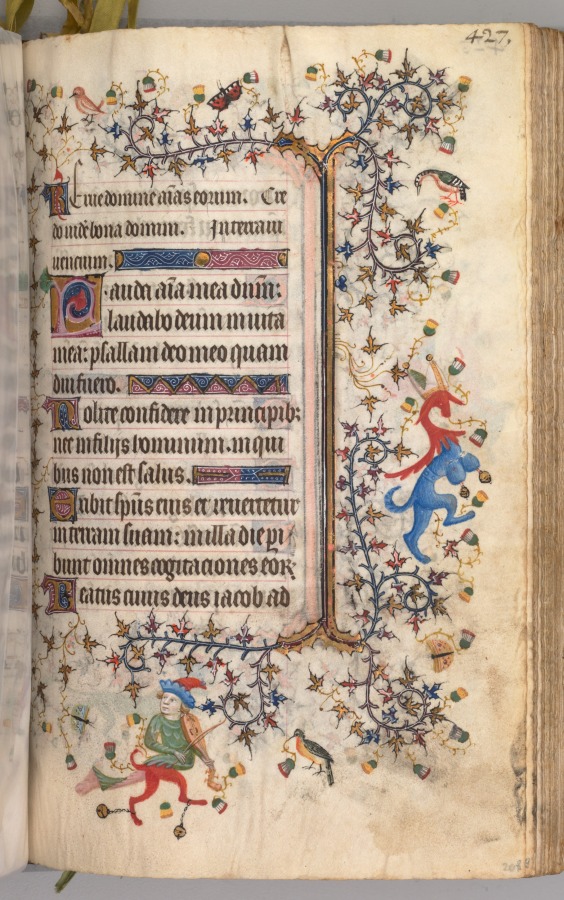 427.
Erue domine aīas eorum. Cre
do uidē bona domini. In terram
uencium.
Lauda aīa mea dūm:
laudabo deum in uita
mea: psallam deo meo quam
diu fuero.
Nolite confidere in principibꝫ
nec in filijs hominum. in qui
bus non est salus.
Exibit spūs eius et reuertetur
in terram suam: in illa die pi
bunt omnes cogitaciones eoꝝ
Beatus cuius deus iacob ad